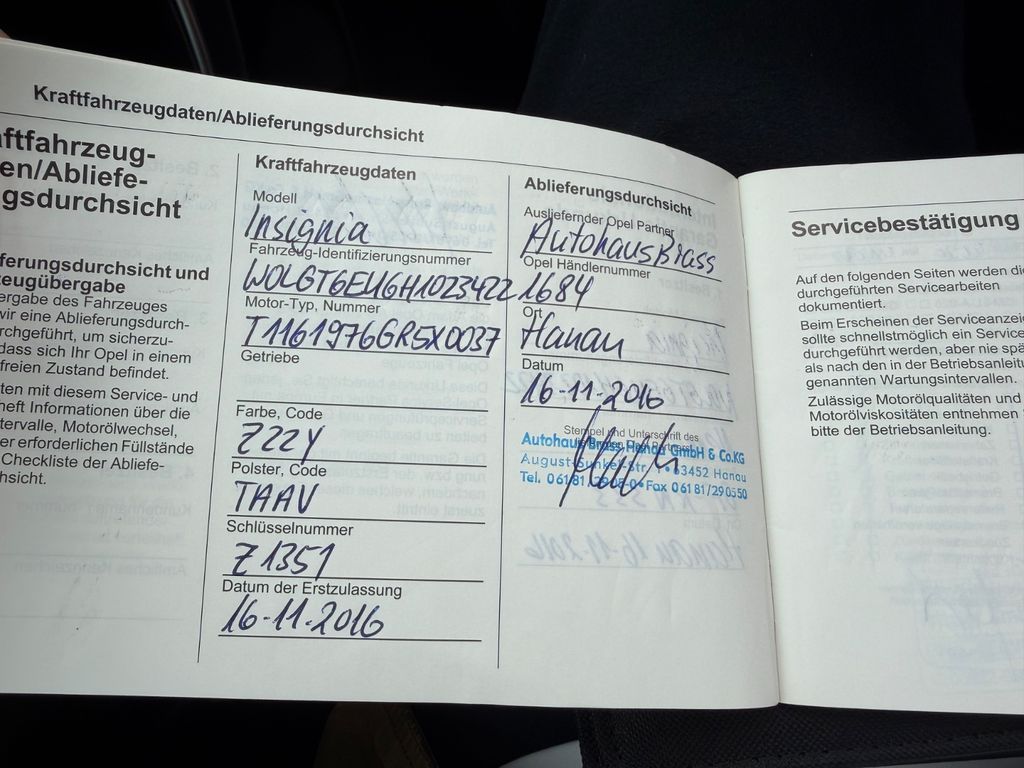 Kraftfahrzeugdaten/Ablieferungsdurchsicht
aftfahrzeug-
en/Abliefe-
gsdurchsicht
ferungsdurchsicht und
zeugübergabe
ergabe des Fahrzeuges
wir eine Ablieferungsdurch-
rchgeführt, um sicherzu-
dass sich Ihr Opel in einem
freien Zustand befindet.
ten mit diesem Service- und
heft Informationen über die
tervalle, Motorölwechsel,
er erforderlichen Füllstände
Checkliste der Abliefe-
hsicht.
Kraftfahrzeugdaten
Modell
Insignia
Fahrzeug-Identifizierungsnummer
W0LGT6EU6H1023422
Motor-Typ, Nummer
T1161976GR5X0037
Getriebe
Farbe, Code
ZZZY
Polster, Code
TAAV
Schlüsselnummer
Z1351
Datum der Erstzulassung
16-11-2016
Ablieferungsdurchsicht
Ausliefernder Opel Partner
Autohaus Brass
Opel Händlernummer
1684
Ort
Hanau
Datum
16-11-2016
Stempel und Unterschrift des
Autohaus Brass Hanau GmbH & Co.KG
August-Sunkel-Str. 63452 Hanau
Tel. 06181/29 Fax 06181/290550
Servicebestätigung
Auf den folgenden Seiten werden die
durchgeführten Servicearbeiten
dokumentiert.
Beim Erscheinen der Serviceanzei
sollte schnellstmöglich ein Service
durchgeführt werden, aber nie spä
als nach den in der Betriebsanleitu
genannten Wartungsintervallen.
Zulässige Motorölqualitäten und
Motorölviskositäten entnehmen
bitte der Betriebsanleitung.